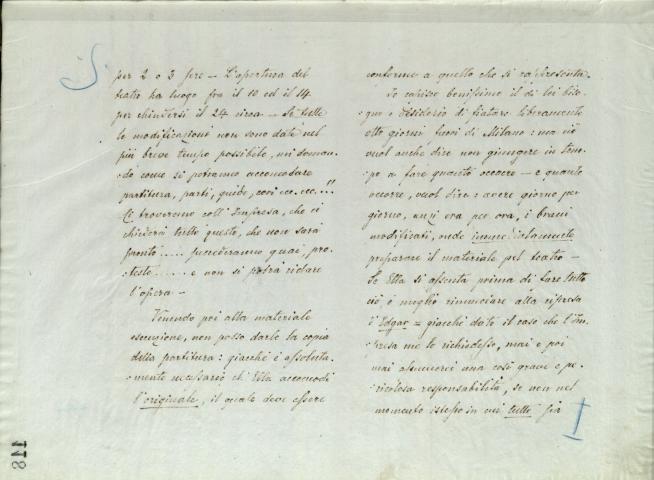 5.
per 2 o 3 sere — L'apertura del
teatro ha luogo fra il 10 ed il 14
per chiudersi il 24 circa — Se tutte
le modificazioni non sono date nel
più breve tempo possibile, mi doman-
do come si potranno accomodare
partitura, parti, guide, cori ecc. ecc....!!
Ci troveremo coll'Impresa, che ci
chiederà tutto questo, che non sarà
pronto..... succederanno guai, pro-
teste..... e non si potrà ridare
l'opera —
Venendo poi alla materiale
esecuzione, non posso darle la copia
della partitura: giacchè è assoluta-
mente necessario ch'Ella accomodi
l'originale, il quale deve essere
conforme a quello che si rappresenta.
Io capisco benissimo il di lei biso-
gno e desiderio di fiatare liberamente
otto giorni fuori di Milano: ma ciò
vuol anche dire non giungere in tem-
po a fare quanto occorre — e quanto
occorre, vuol dire: avere giorno per
giorno, anzi ora per ora, i brani
modificati, onde immediatamente
preparare il materiale pel teatro —
Se Ella si assenta prima di fare tutto
ciò è meglio rinunciare alla ripresa
d'Edgar = giacchè dato il caso che l'Im-
presa me lo richiedesse, mai e poi
mai assumerei una così grave e pe-
ricolosa responsabilità, se non nel
momento istesso in cui tutto sia
118